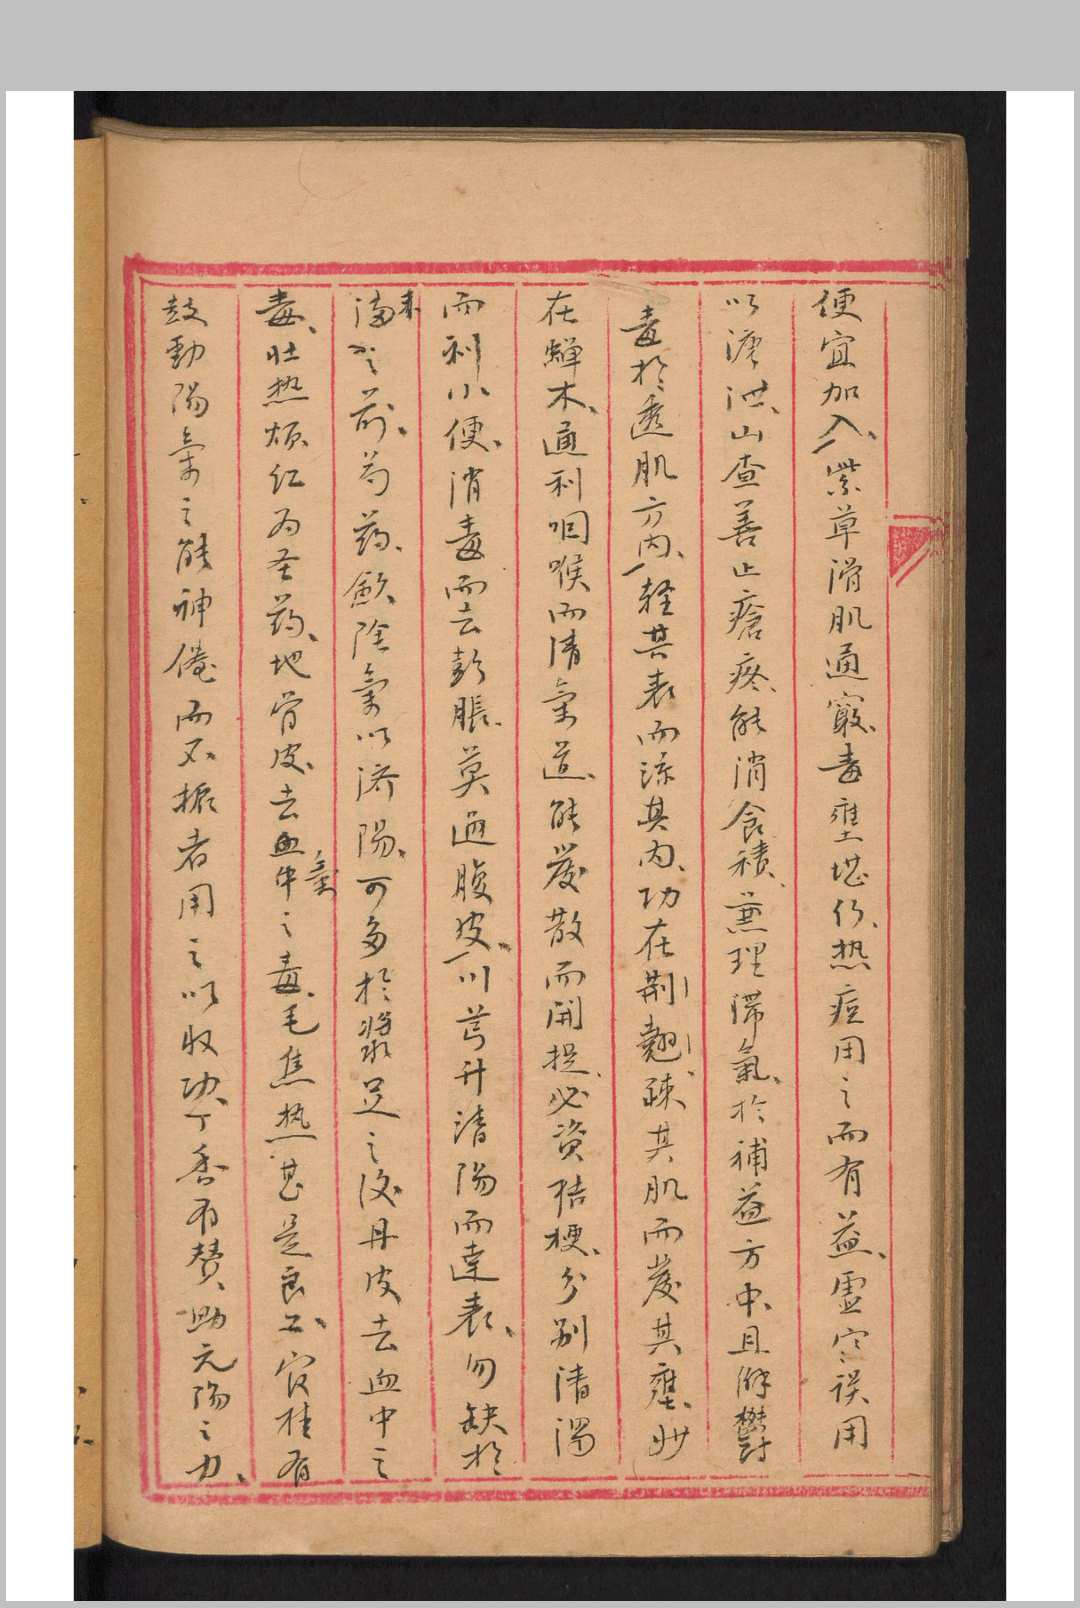 便宜加入、紫草滑肌通竅、毒壅堪仍、热痘用之而有益、虛寒误用
以溏泄、山查善止瘡疼、能消食積、薰理滞氣、於補益方中、且解鬱
毒於透肌方内、轻其表而凉其内、功在荆翹、疎其肌而發其壅、妙
在蟬木、通利咽喉而清氣道、能發散而開提、必资桔梗、分别清濁
而利小便、消毒而去膨脹、莫過腹皮、川芎升清陽而達表、勿缺於
未满之前、芍药、歛陰氣以济陽、可多於漿足之後、丹皮去血中之
毒、壮热烦红为圣药、地骨皮、去血中氣之毒、毛焦热甚是良工、官桂有
鼓動陽氣之能、神倦而不振者用之以收功、丁香有赞助元陽之力、